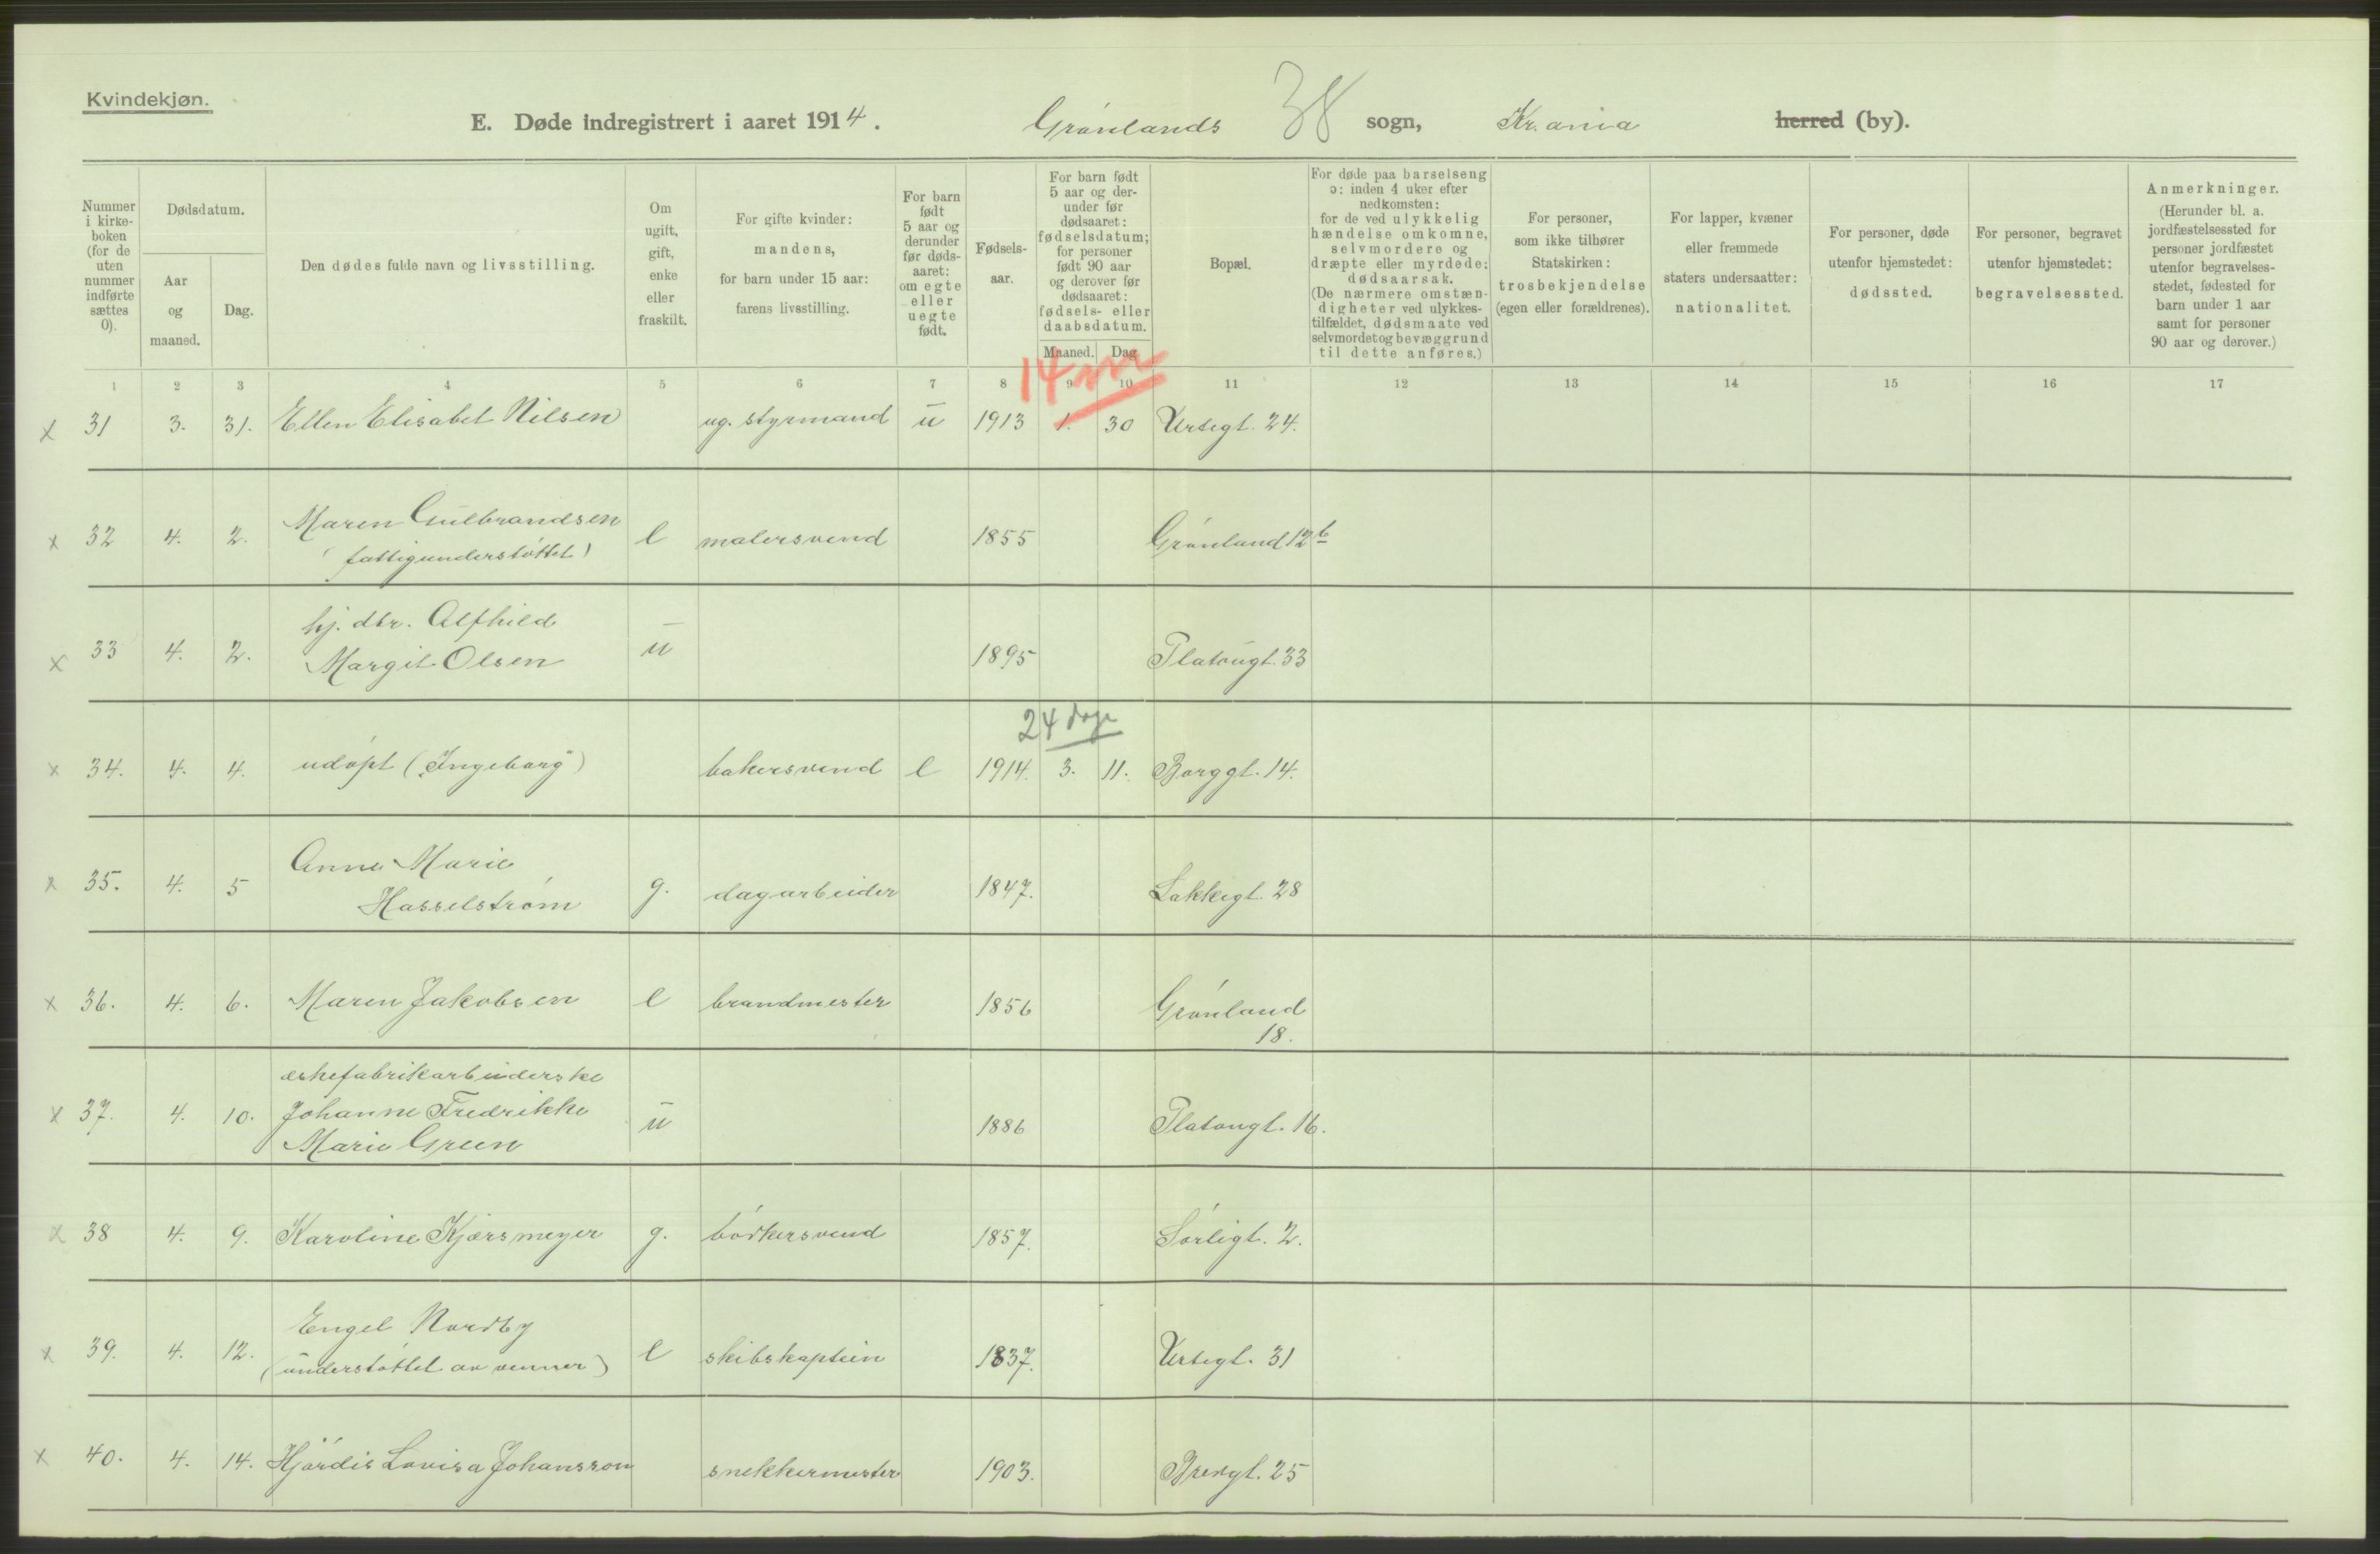 Kvindekjøn.
E. Døde indregistrert i aaret 1914. Grønlands 38 sogn, Kr.ania herred (by).
Nummer i kirkeboken (for de uten nummer indførte sættes 0).
Dødsdatum.
Aar og maaned.
Dag.
Den dødes fulde navn og livsstilling.
Om ugift, gift, enke eller fraskilt.
For gifte kvinder: mandens, for barn under 15 aar: farens livsstilling.
For barn født 5 aar og derunder før dødsaaret: om egte eller uegte født.
Fødselsaar.
For barn født 5 aar og derunder før dødsaaret: fødselsdatum; for personer født 90 aar og derover før dødsaaret: fødsels- eller daabsdatum.
Maaned. Dag
Bopæl.
For døde paa barselseng ɔ: inden 4 uker efter nedkomsten: for de ved ulykkelig hændelse omkomne, selvmordere og dræpte eller myrdede: dødsaarsak. (De nærmere omstændigheter ved ulykkestilfældet, dødsmaate ved selvmordet og bevæggrund til dette anføres.)
For personer, som ikke tilhører Statskirken: trosbekjendelse (egen eller forældrenes).
For lapper, kvæner eller fremmede staters undersaatter: nationalitet.
For personer, døde utenfor hjemstedet: dødssted.
For personer, begravet utenfor hjemstedet: begravelsessted.
Anmerkninger. (Herunder bl. a. jordfæstelsessted for personer jordfæstet utenfor begravelsesstedet, fødested for barn under 1 aar samt for personer 90 aar og derover.)
1 2 3 4 5 6 7 8 9 10 11 12 13 14 15 16 17
14 m
x 31 3. 31. Ellen Elisabet Nilsen ug. styrmand u 1913 1. 30 Urtegt. 24.
x 32 4. 2. Maren Gulbrandsen e malersvend 1855 Grønland 12 b
(fattigunderstøttet)
hj. dtr. Alfhild
x 33 4. 2. Margit Olsen u 1895 Platougt. 33
24 dage
x 34. 4. 4. udøpt ("Ingeborg") bakersvend e 1914. 3. 11. Borggt. 14.
Anne Marie
x 35. 4. 5 Hasselstrøm g. dagarbeider 1847. Lakkegt. 28
x 36. 4. 6. Maren Jakobsen e brandmester 1856 Grønland
18.
æskefabrikarbeiderske
x 37. 4. 10. Johanne Fredrikke u 1886 Platougt. 16.
Marie Green
x 38 4. 9. Karoline Kjærsmeyer g. bødkersvend 1857. Sørligt. 2.
Engel Nordby
x 39. 4. 12. (understøttet av venner) e skibskaptein 1837. Urtegt. 31
x 40. 4. 14. Hjørdis Lovisa Johansson snekkermester 1903. Breigt. 25